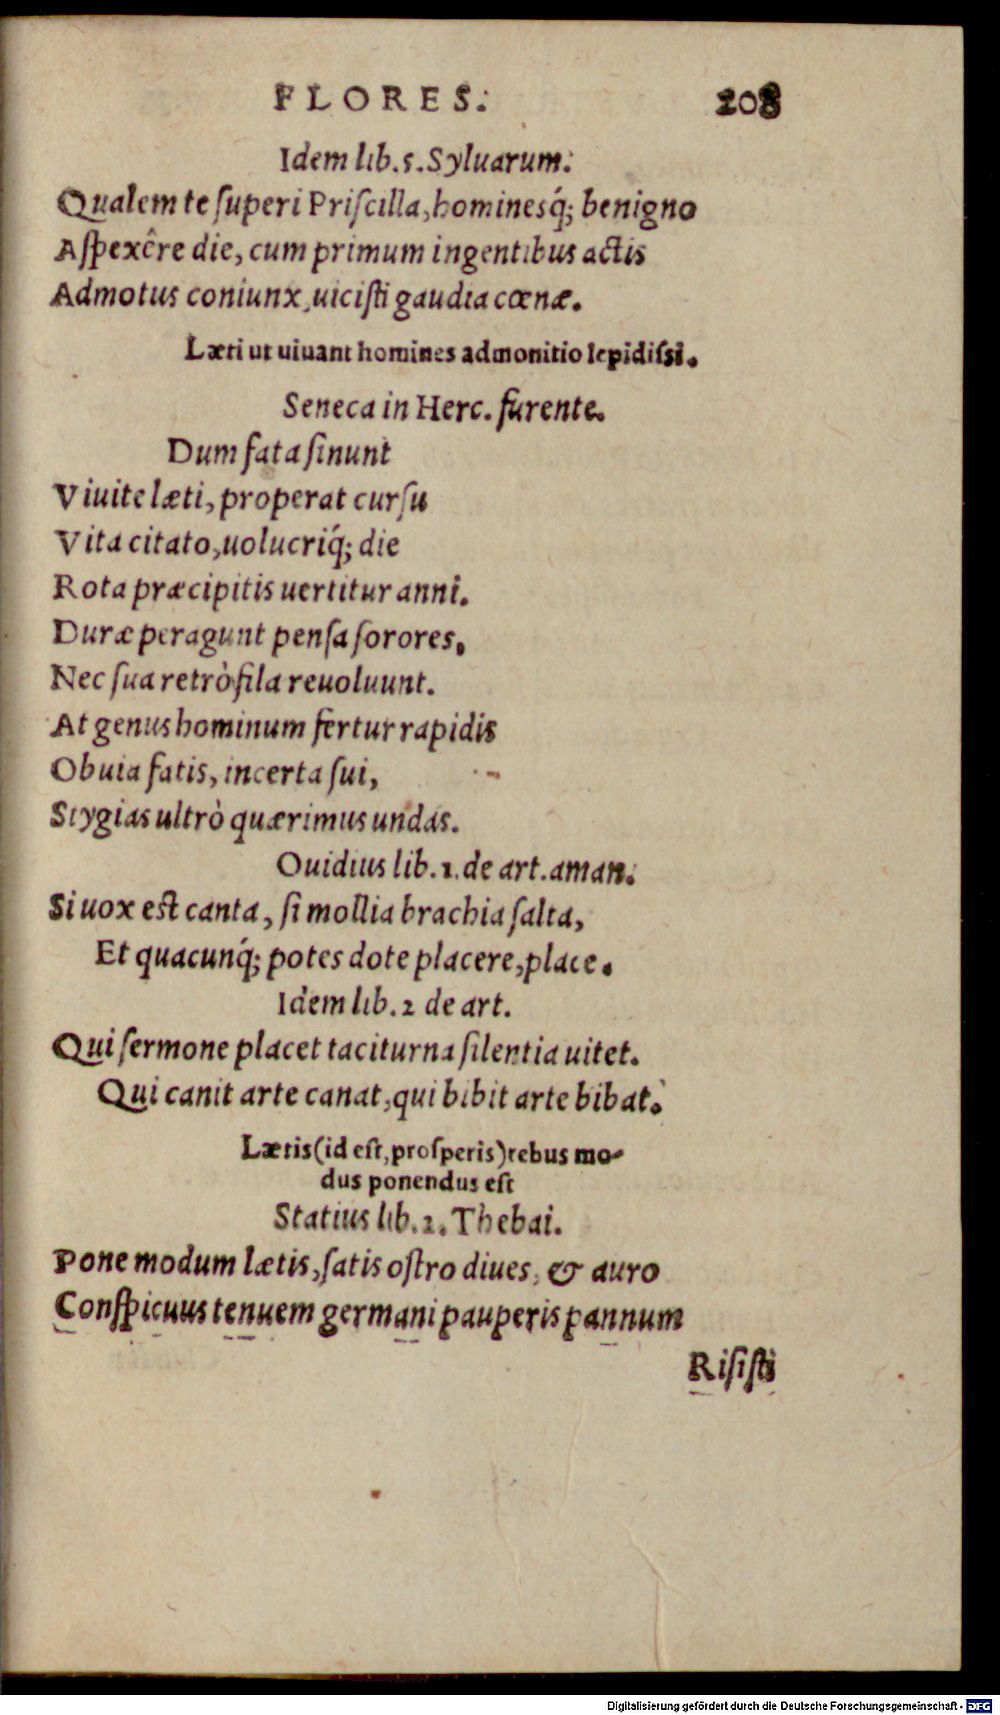 FLORES. 208
Idem lib. 5. Syluarum.
Qualem te ſuperi Priſcilla, hominesq́; benigno
Aſpexêre die, cum primum ingentibus actis
Admotus coniunx, uiciſti gaudia cœnæ.
Læti ut uiuant homines admonitio lepidiſsi.
Seneca in Herc. furente.
Dum fata ſinunt
Viuite læti, properat curſu
Vita citato, uolucriq́; die
Rota præcipitis uertitur anni.
Duræ peragunt penſa ſorores,
Nec ſua retrò fila reuoluunt.
At genus hominum fertur rapidis
Obuia fatis, incerta ſui,
Stygias ultrò quærimus undas.
Ouidius lib. 1. de art. aman.
Si uox eſt canta, ſi mollia brachia ſalta,
Et quacunq́; potes dote placere, place.
Idem lib. 2 de art.
Qui ſermone placet taciturna ſilentia uitet.
Qui canit arte canat, qui bibit arte bibat.
Lætis (id eſt, proſperis) rebus mo-
dus ponendus eſt
Statius lib. 2. Thebai.
Pone modum lætis, ſatis oſtro diues, & auro
Conſpicuus tenuem germani pauperis pannum
Riſiſti
Digitalisierung gefördert durch die Deutsche Forschungsgemeinschaft - DFG